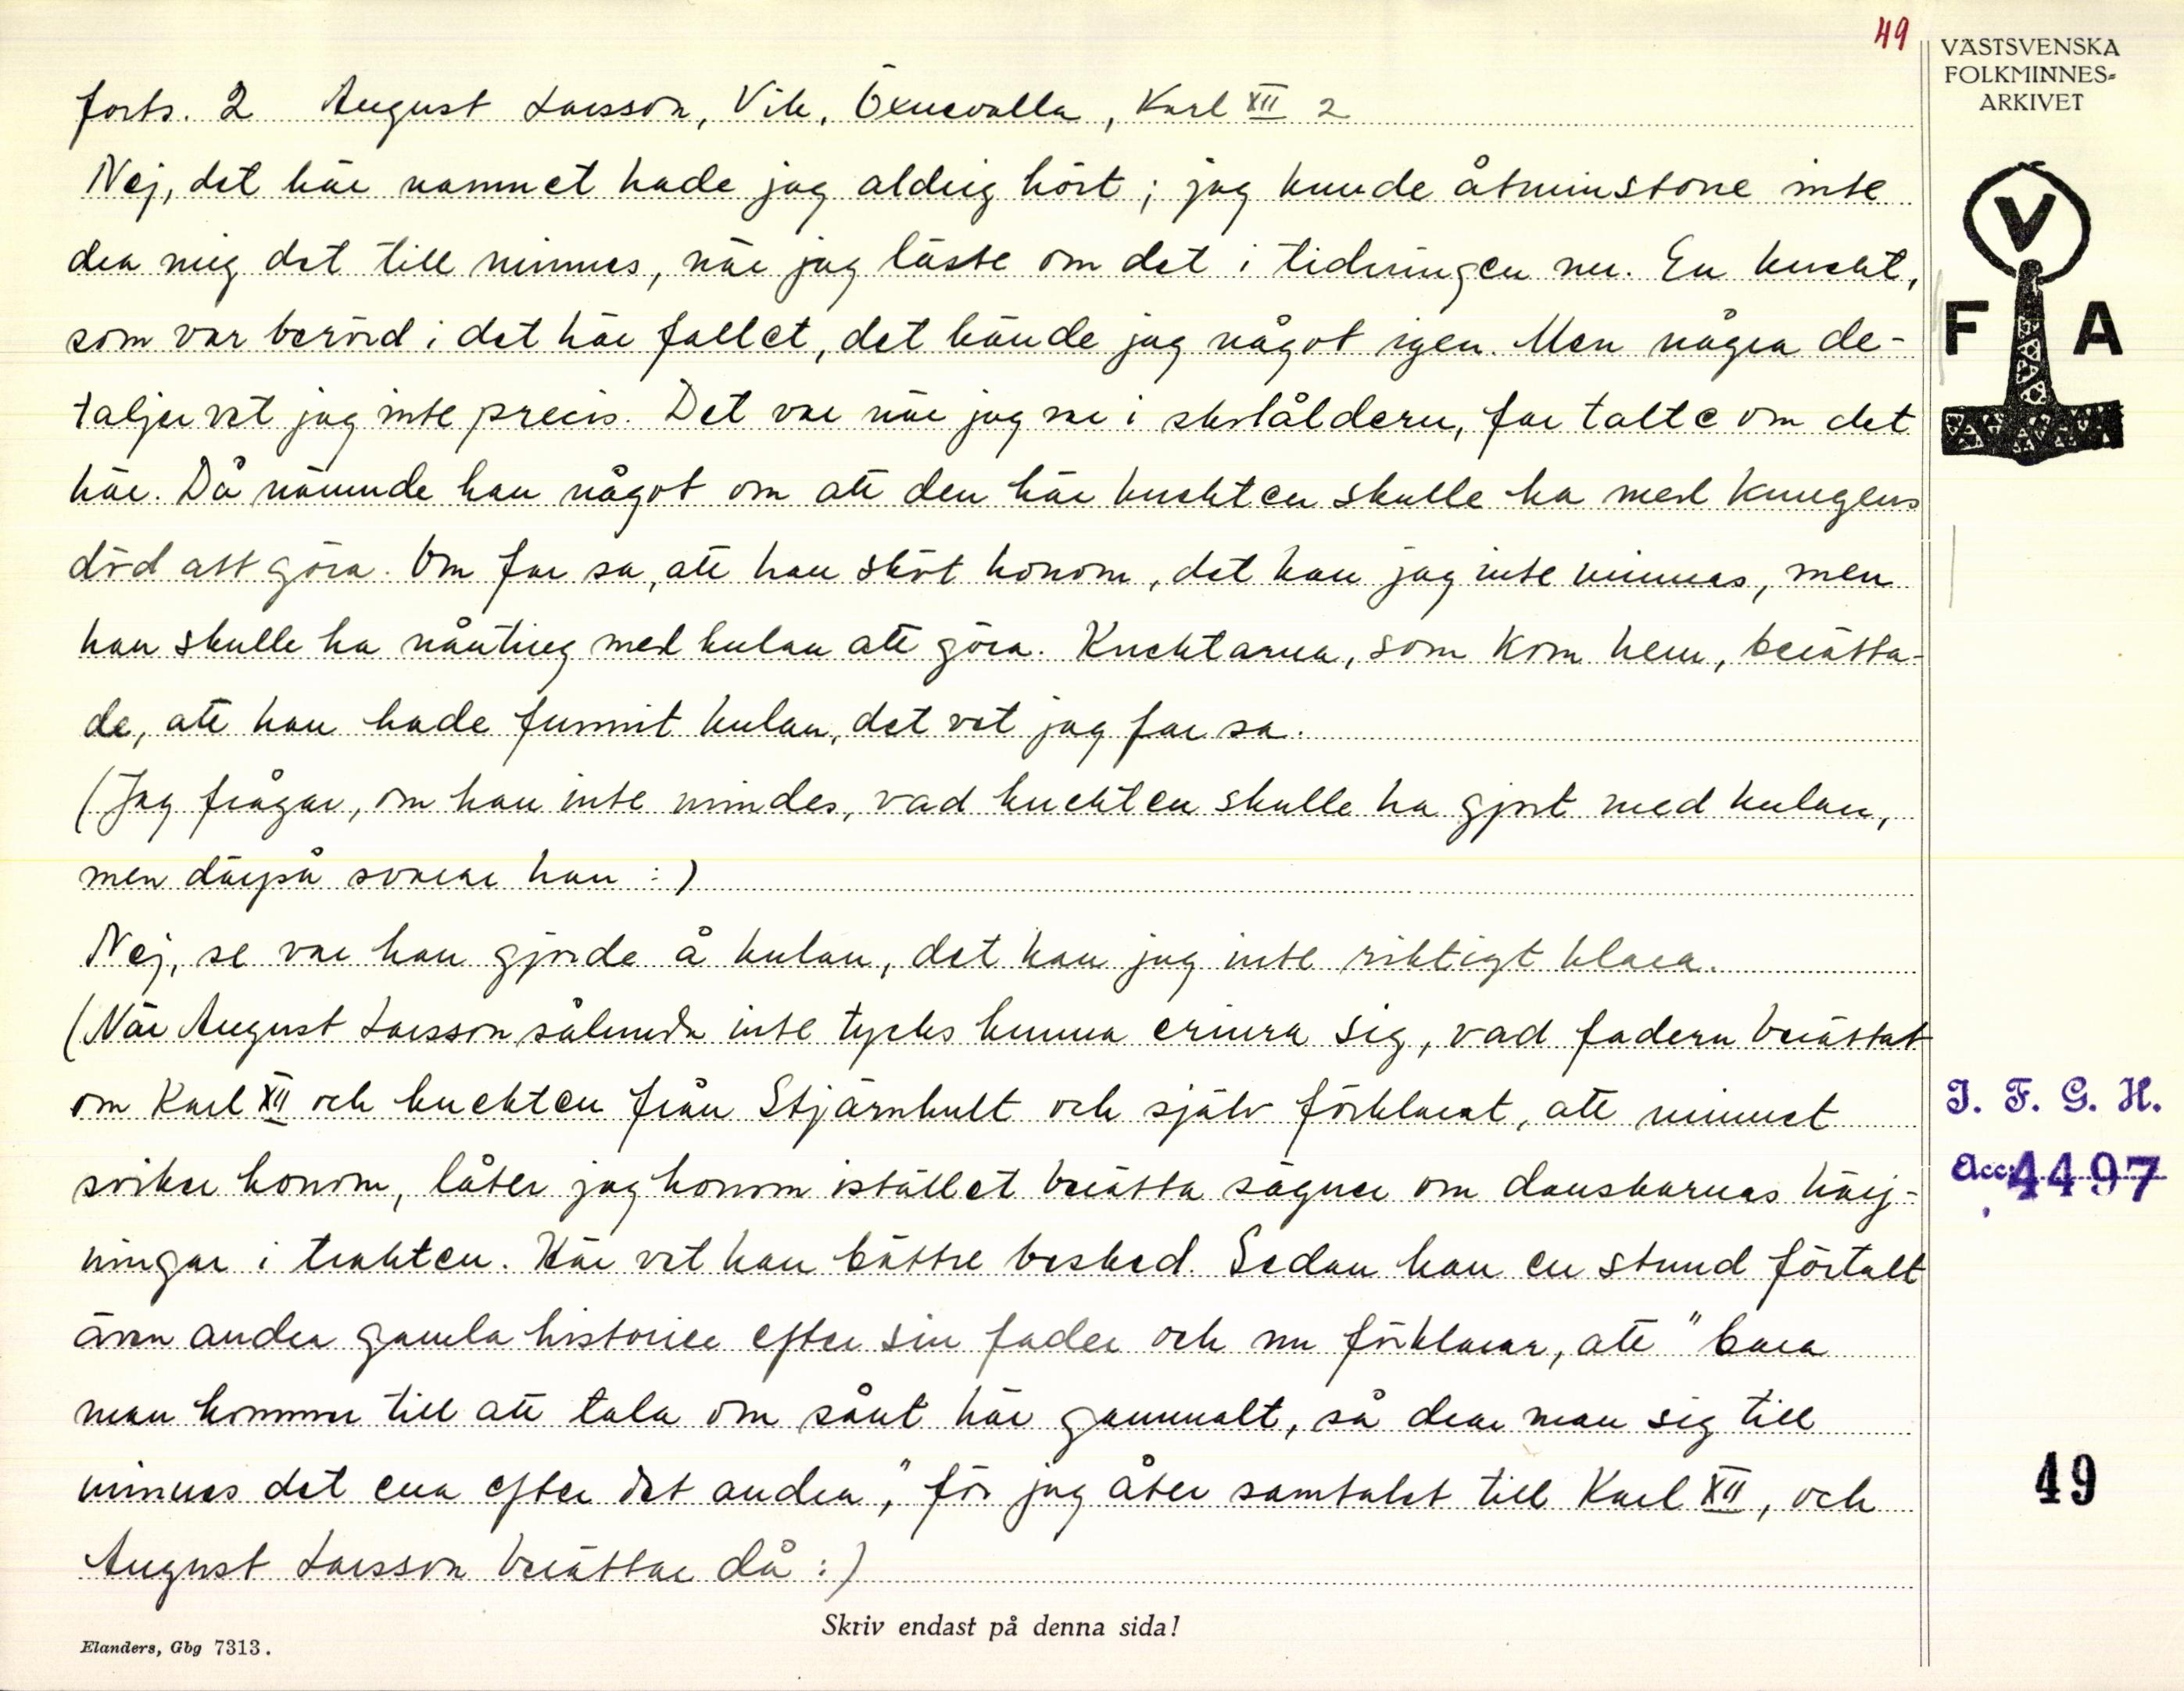 49
VÄSTSVENSKA
FOLKMINNES-
ARKIVET
forts. 2 August Larsson, Vik, Öxnevalla, Karl XII 2
Nej, det här namnet hade jag aldrig hört; jag kunde åtminstone inte
dra mig det till minnes, när jag läste om det i tidningen nu. En knekt,
som var berörd i det här fallet, det kände jag något igen. Men några de-
taljer vet jag inte precis. Det var när jag var i skolåldern, far talte om det
här. Då nämnde han något om att den här knekten skulle ha med kungens
död att göra. Om far sa, att han sköt honom, det kan jag inte minnas, men
han skulle ha nånting med kulan att göra. Knektarna, som kom hem, berätta-
de, att han hade funnit kulan, det vet jag far sa.
(Jag frågar, om han inte mindes, vad knekten skulle ha gjort med kulan,
men därpå svarar han :)
Nej, se var han gjorde å kulan, det kan jag inte riktigt klara.
(När August Larsson sålunda inte tycks kunna erinra sig, vad fadern berättat
om Karl XII och knekten från Stjärnhult och själv förklarat, att minnet
sviker honom, låter jag honom istället berätta sägner om danskarnas härj-
ningar i trakten. Här vet han bättre besked. Sedan han en stund förtalt
även andra gamla historier efter sin fader och nu förklarar, att "bara
man kommer till att tala om sånt här gammalt, så drar man sig till
minnes det ena efter det andra", för jag åter samtalet till Karl XII, och
August Larsson berättar då :)
V
F A
I. F. G. H.
Acc: 4497
49
Skriv endast på denna sida!
Elanders, Gbg 7313.